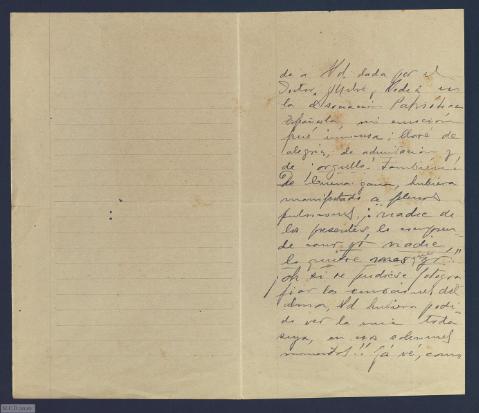 da a Vd. dada por el
Doctor,
la Asociación Patriótica
Española, mi emoción
fué inmensa; lloré de
alegría, de admiración y
de orgullo también.
De buena gana, hubiera
manifestado a plenos
pulmones, ¡¡nadie de
los presentes, lo compren-
de como yo, nadie
lo quiere mas yo!!"
¡Oh si se pudiese fotogra-
fiar las emociones del
alma, Vd. hubiera podi-
do ver la mia toda
suya, en esos solemnes
momentos!! Ya vé, como